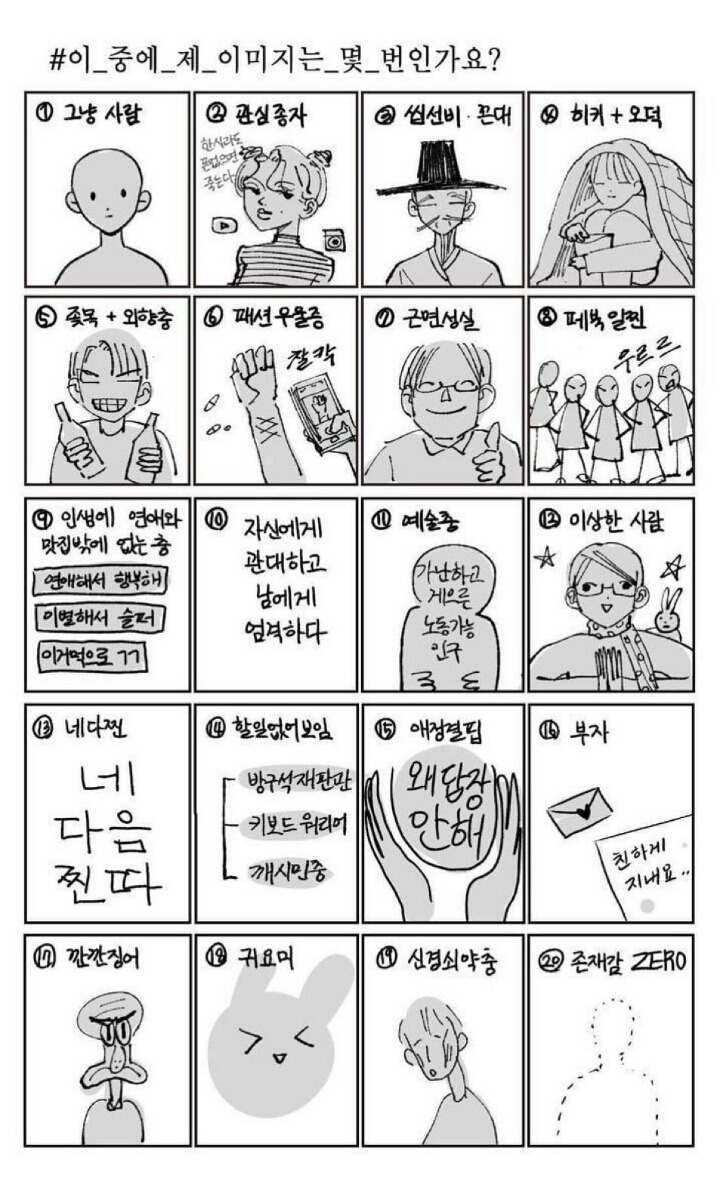 #이_중에_제_이미지는_몇_번인가요?
① 그냥 사람
한시라도
폰없으면
죽는다
② 관심종자
③ 씹선비·꼰대
④ 히키+오덕
⑤ 좆목+외향충
⑥ 패션우울증
찰칵
⑦ 근면성실
⑧ 페북일찐
우르르
⑨ 인생에 연애와
맛집밖에 없는 충
연애해서 행복해
이별해서 슬퍼
이거먹으로 ㄱㄱ
⑩ 자신에게
관대하고
남에게
엄격하다
⑪ 예술충
가난하고
게으른
노동가능
인구
⑫ 이상한 사람
⑬ 네다찐
네
다음
찐따
⑭ 할일없어보임
방구석재판관
키보드워리어
깨시민충
⑮ 애정결핍
왜답장
안해
⑯ 부자
친하게
지내요..
⑰ 깐깐징어
⑱ 귀요미
⑲ 신경쇠약충
⑳ 존재감 ZERO